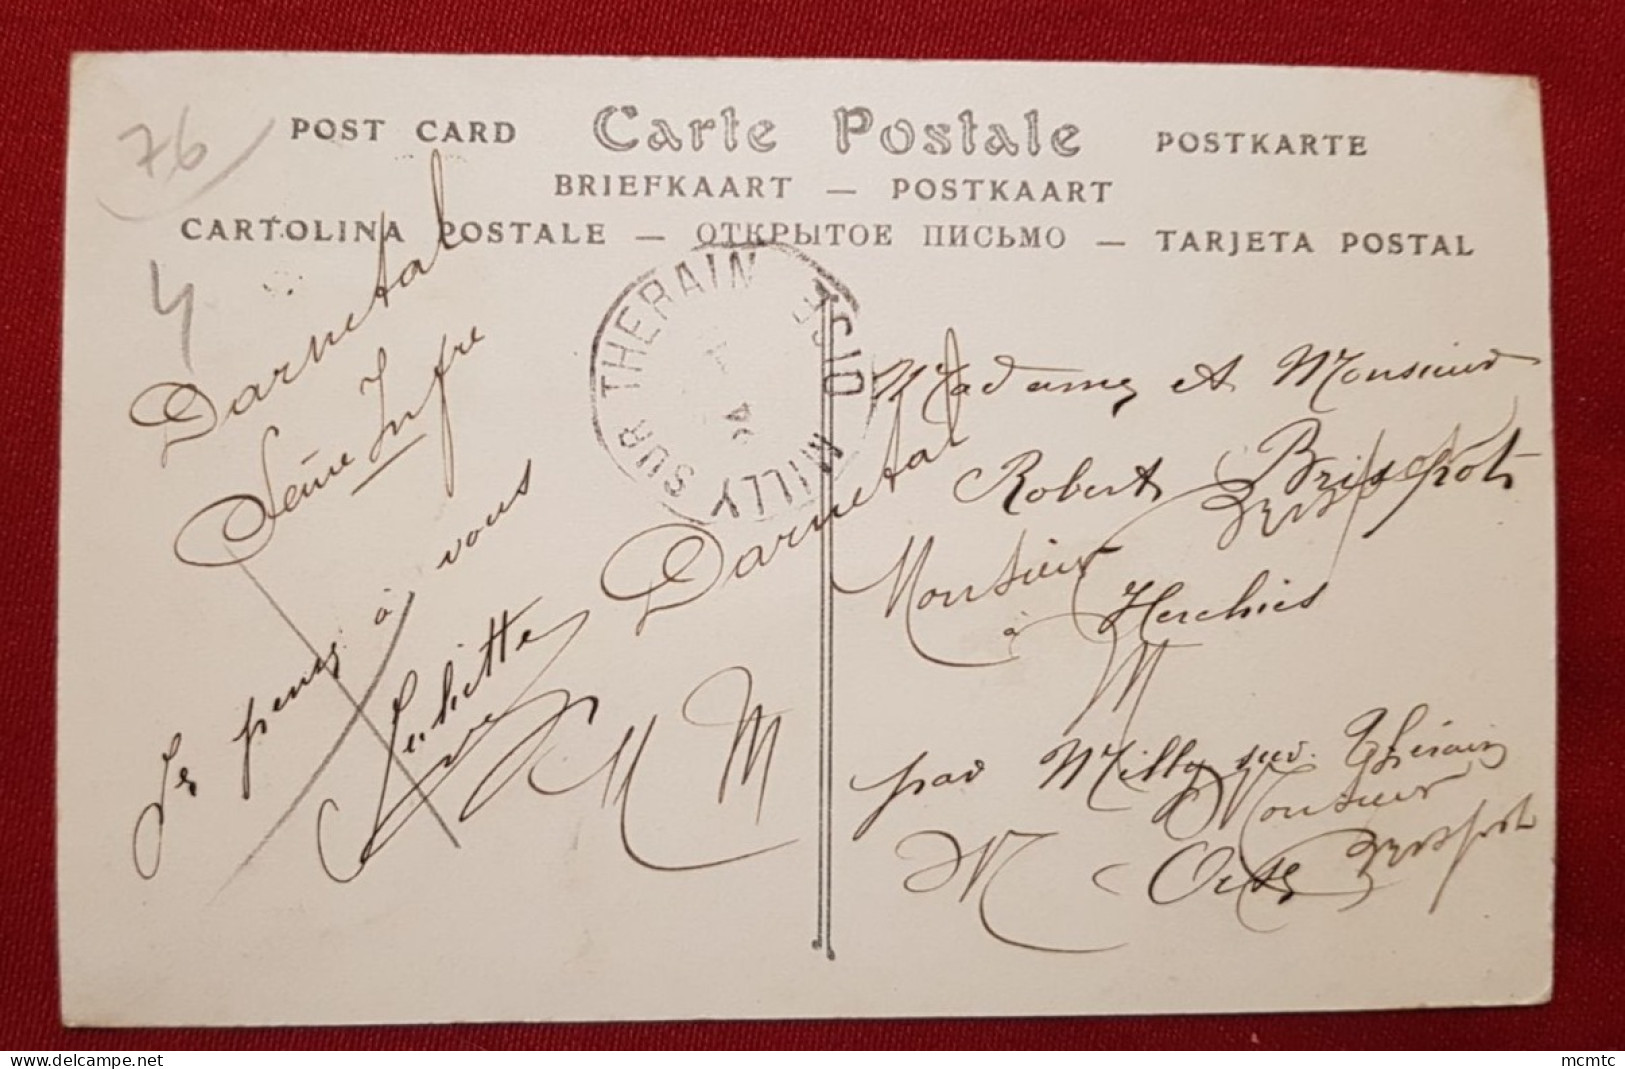 76
POST CARD Carte Postale POSTKARTE
BRIEFKAART — POSTKAART
CARTOLINA POSTALE — ОТКРЫТОЕ ПИСЬМО — TARJETA POSTAL
4
MILLY SUR THERAIN OISE
Darnetal
Seine Infre
Je pense à vous
Juliette
Darnetal
M M
Madame et Monsieur
Robert
Monsieur
à Herchies
M
par Milly sur Thérain
Monsieur
M Oise
mcmtc